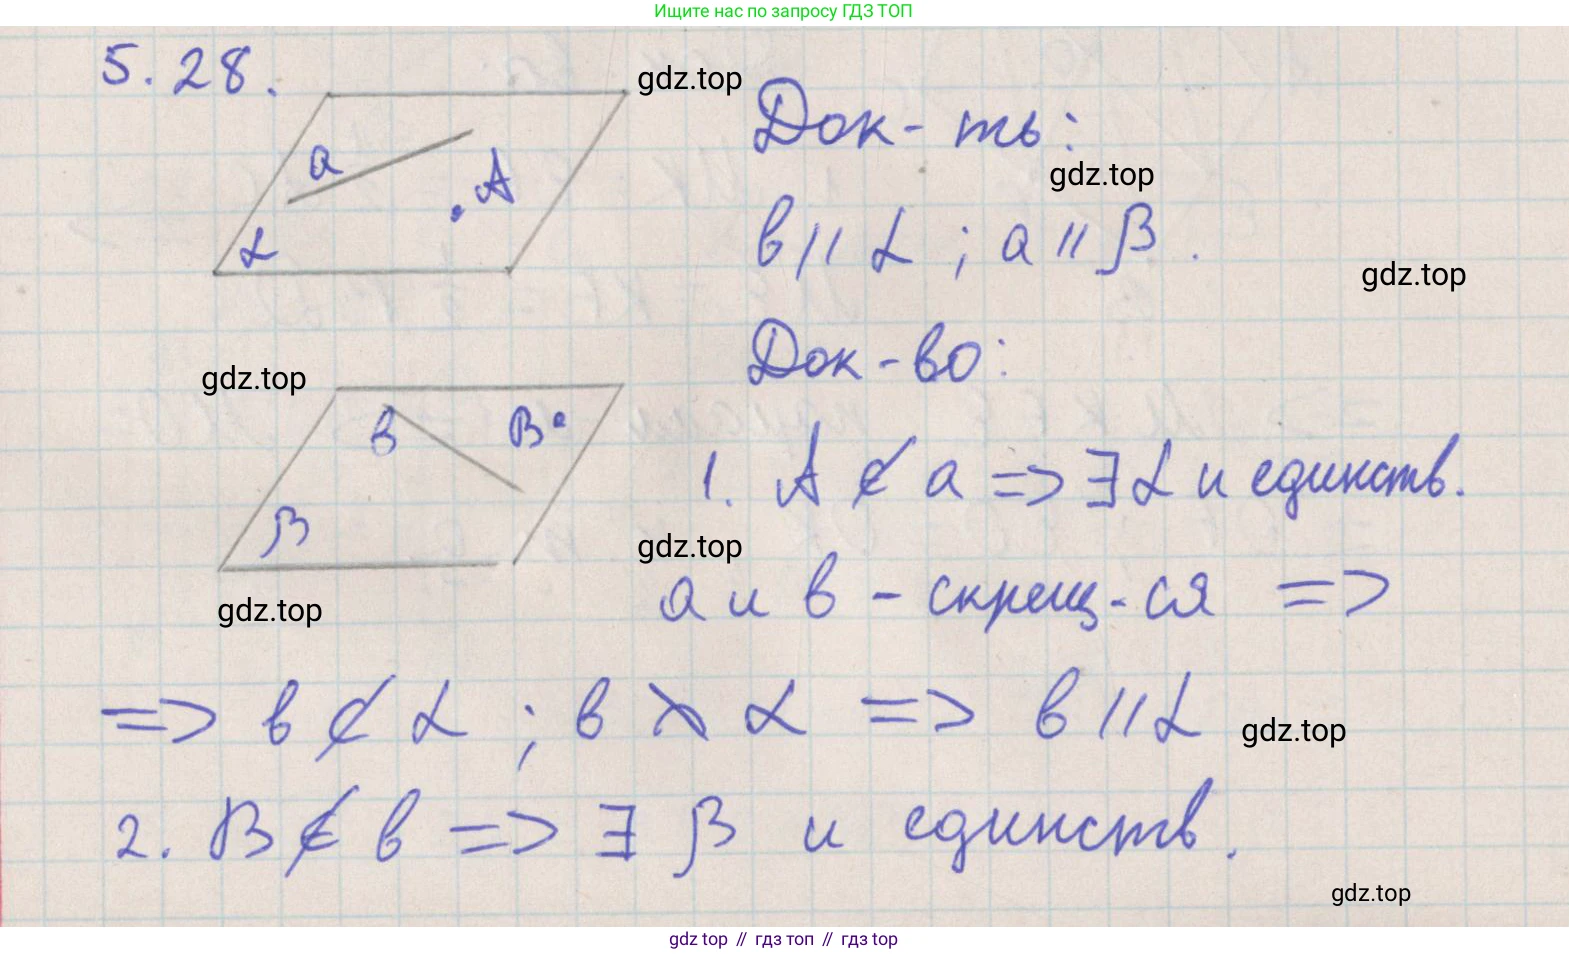 Ищите нас по запросу ГДЗ ТОП
5.28.
gdz.top
a
A
α
Док-ть:
gdz.top
b || α ; a || β.
gdz.top
Док-во:
gdz.top
b
B
β
1. A ∉ a => ∃ α и единств.
gdz.top
gdz.top
a и b - скрещ-ся =>
=> b ⊄ α ; b ∦ α => b || α
gdz.top
2. B ∉ b => ∃ β и единств.
gdz.top
gdz top // гдз топ // гдз top